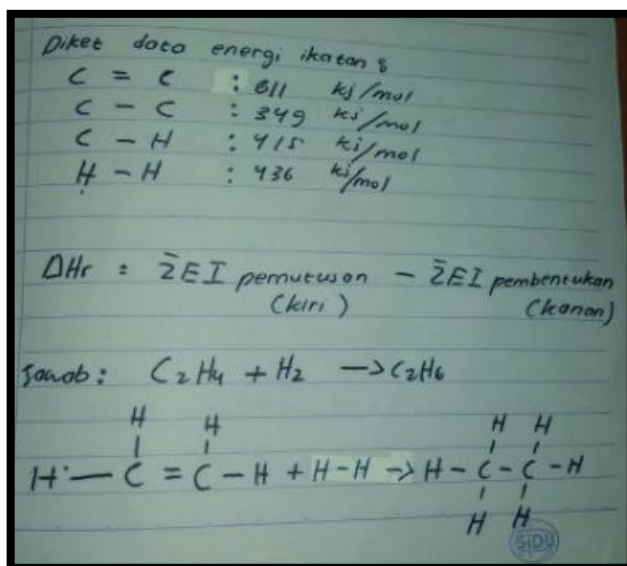 Diket data energi ikatan :
C = C : 611 kj/mol
C - C : 349 kj/mol
C - H : 415 kj/mol
H - H : 436 kj/mol
ΔHr = ΣEI pemutusan - ΣEI pembentukan
(kiri) (kanan)
Jawab : C2H4 + H2 -> C2H6
H H H H
| | | |
H - C = C - H + H-H -> H - C - C - H
| |
H H
SIDU